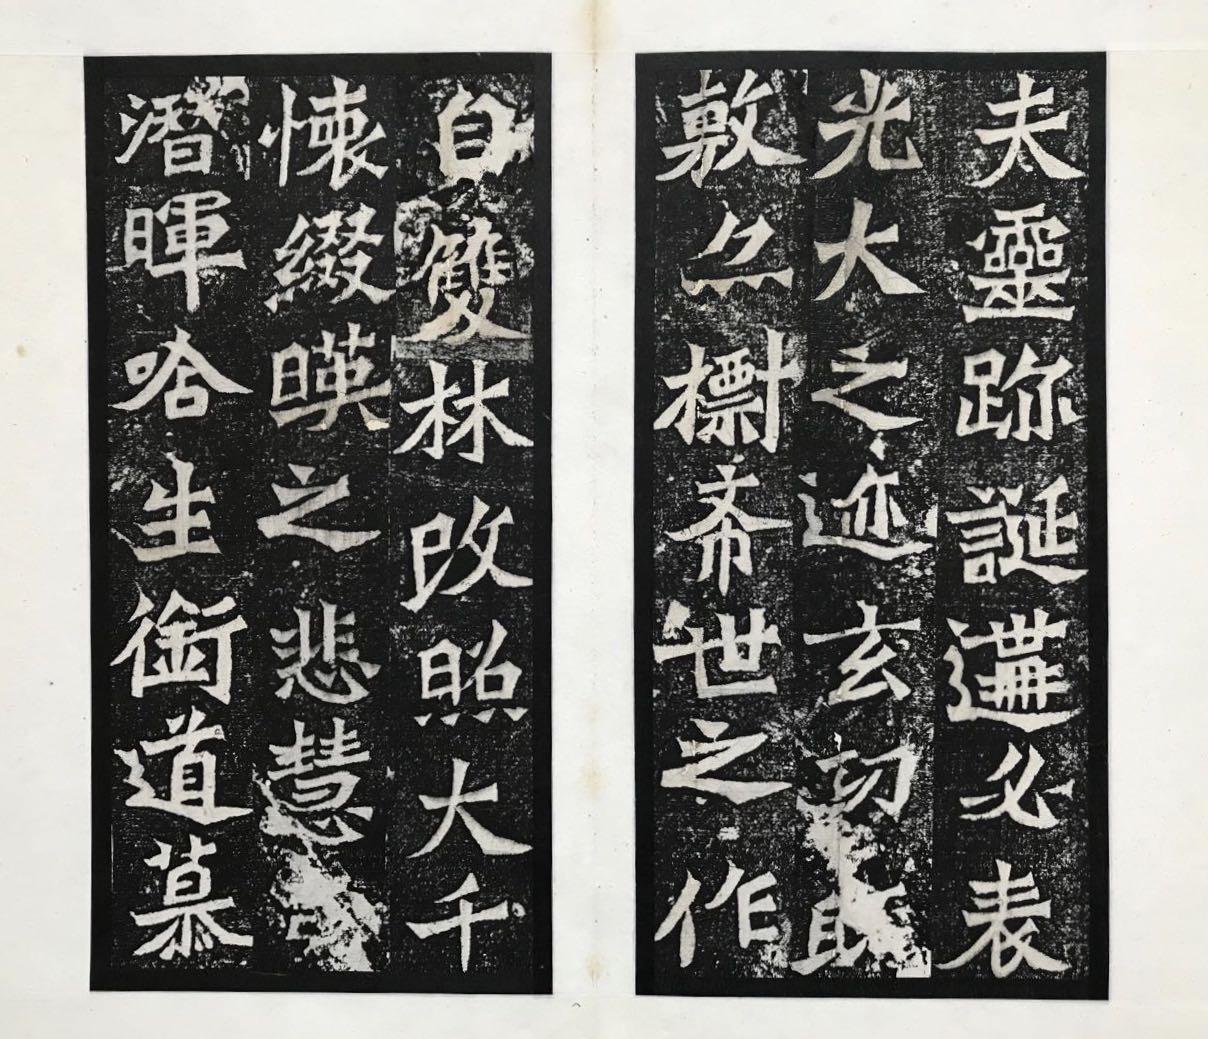 夫靈跡誕遘必表
光大之迹玄功既
敷亦檦希世之作
自雙林改照大千
懷綴暎之悲慧
潛暉唅生銜道慕